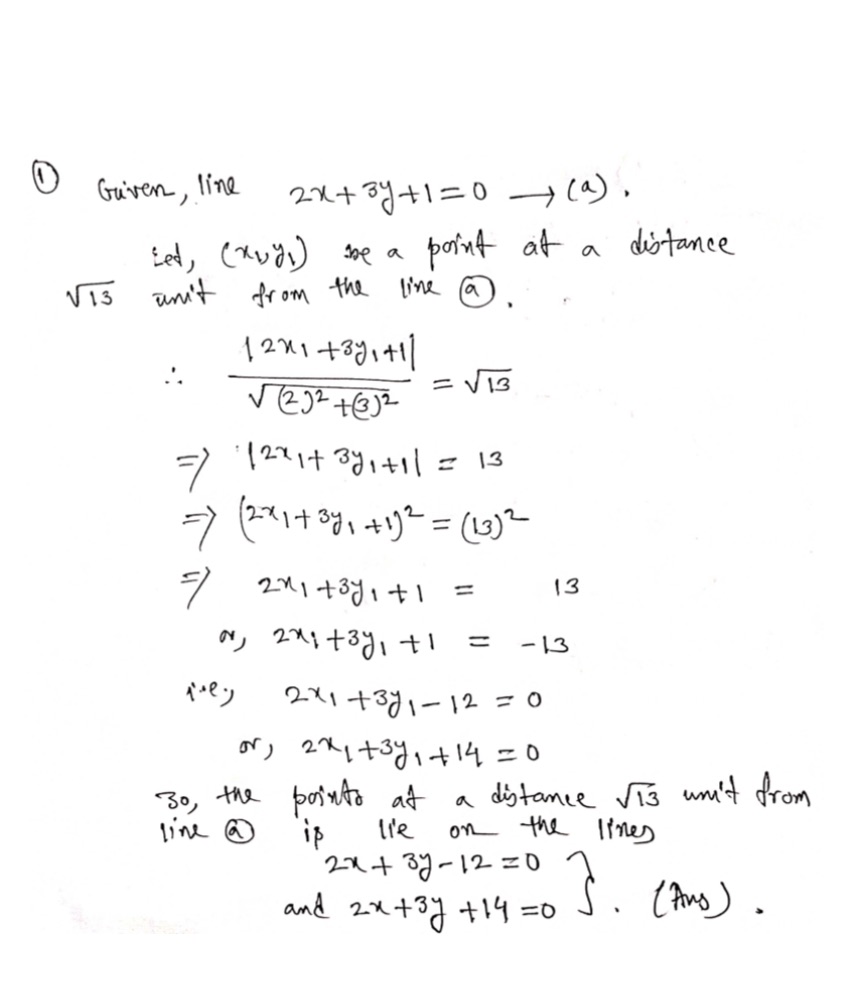 ① Given, line 2x+3y+1=0 → (a).
Let, (x₁,y₁) be a point at a distance
√13 unit from the line ⓐ.
∴ |2x₁+3y₁+1| / √(2)²+(3)² = √13
⇒ |2x₁+3y₁+1| = 13
⇒ (2x₁+3y₁+1)² = (13)²
⇒ 2x₁+3y₁+1 = 13
or, 2x₁+3y₁+1 = -13
i.e., 2x₁+3y₁-12 = 0
or, 2x₁+3y₁+14 = 0
So, the points at a distance √13 unit from
line ⓐ is lie on the lines
2x+3y-12=0
and 2x+3y+14=0 }. (Ans).